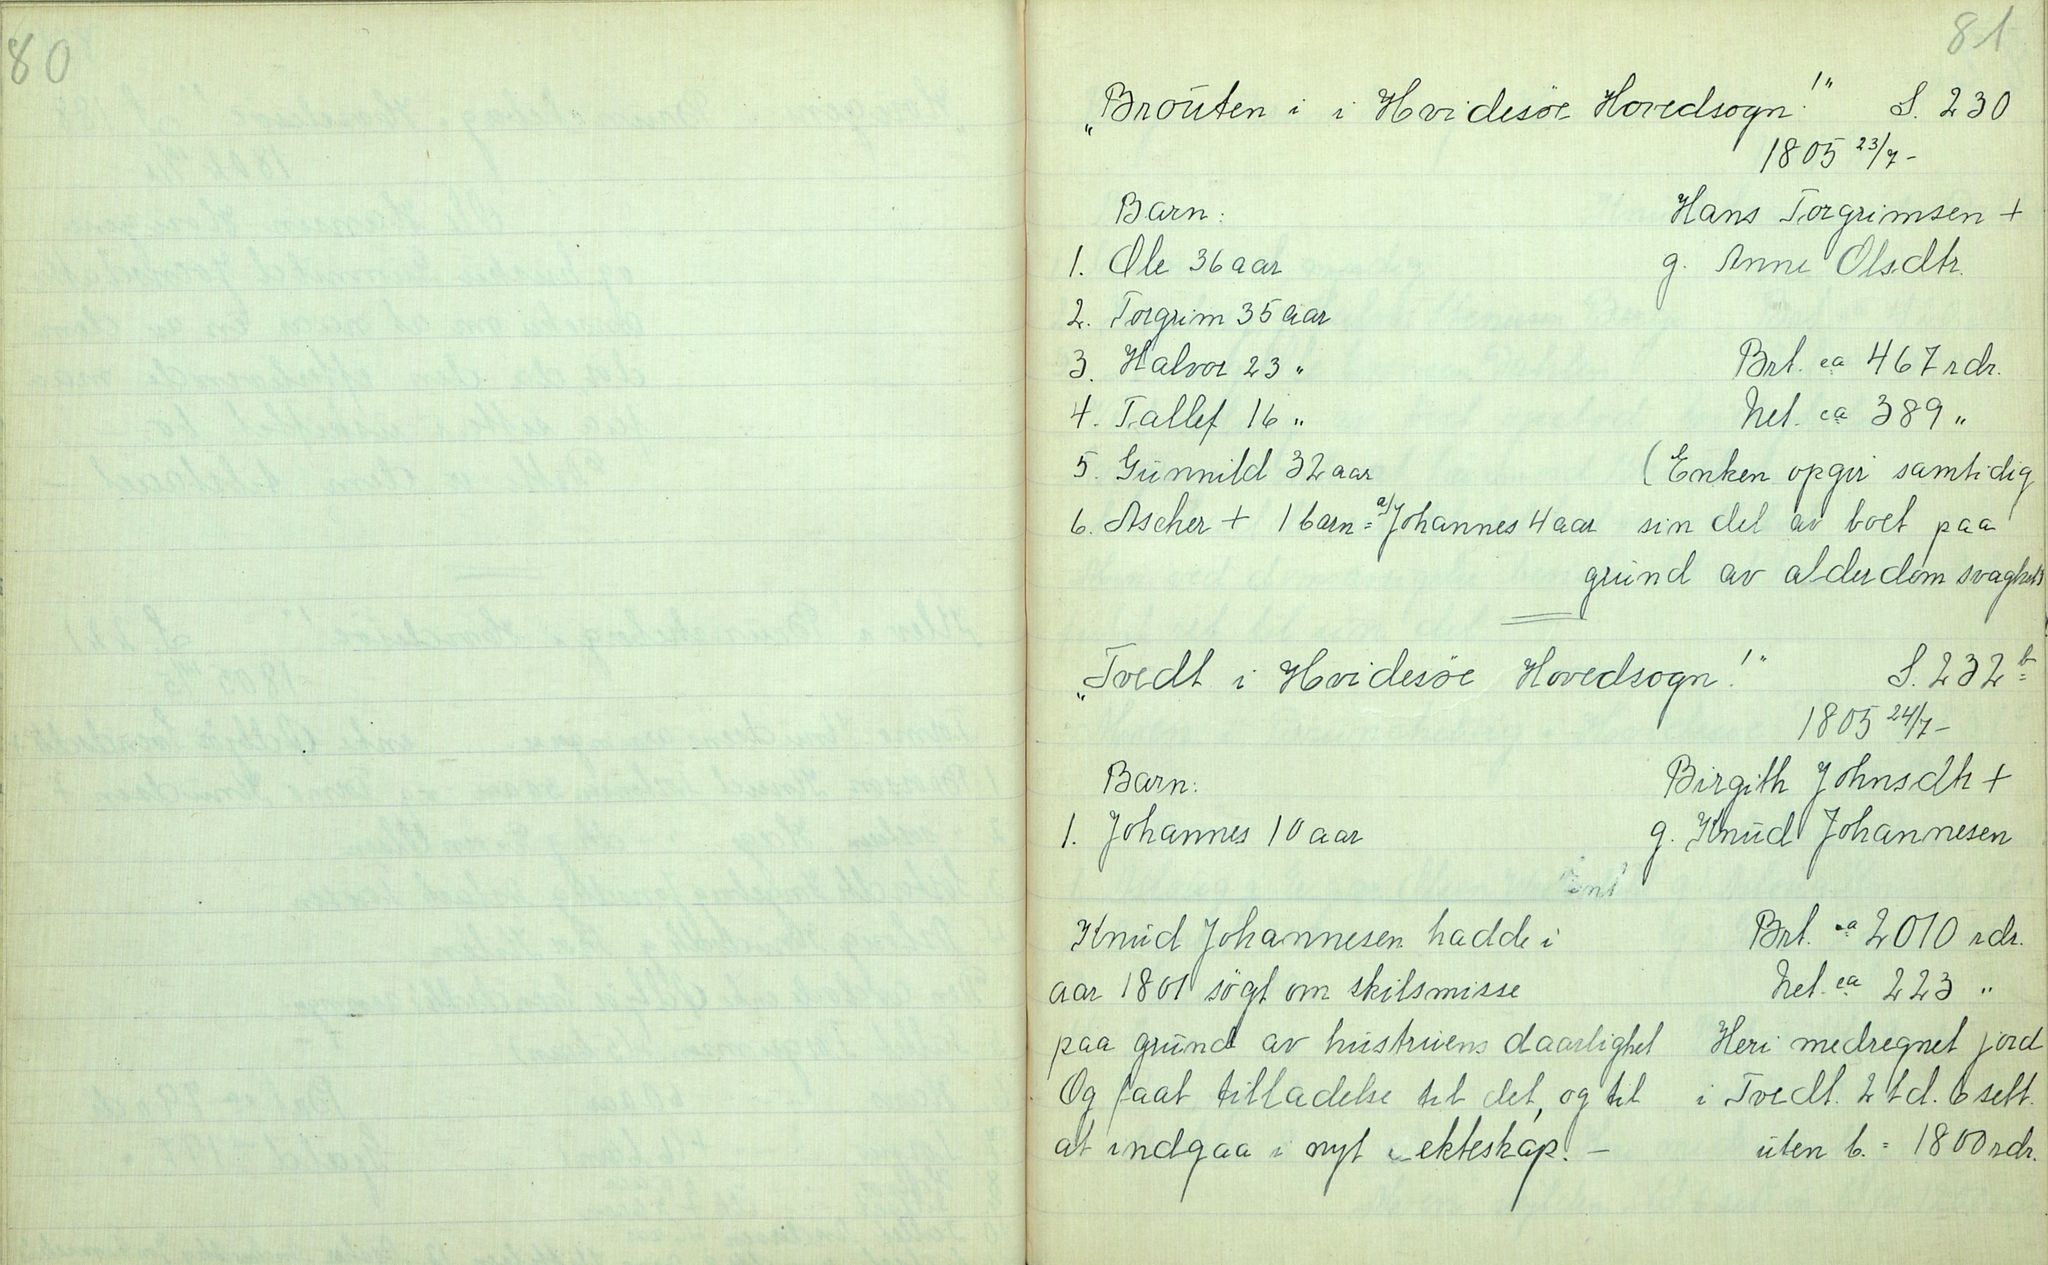 80
81
„Broüten i i Hvidesöe Hovedsogn!" S. 230
1805 23/7 -
Barn: Hans Torgrimsen +
1. Ole 36 aar g. Anne Olsdtr.
2. Torgrim 35 aar
3. Halvor 23 " Brt. ca 467 rdr.
4. Tallef 16 " Net. ca 389 "
5. Günnild 32 aar (Enken opgir samtidig
6. Ascher + 1 barn = a/ Johannes 4 aar sin del av boet paa
gründ av alderdom svaghet)
„Tvedt i Hvidesöe Hovedsogn!" S. 232 b
1805 24/7 -
Barn: Birgith Johnsdtr +
1. Johannes 10 aar g. Knüd Johannesen
Knüd Johannesen hadde i Brt. ca 2010 rdr.
aar 1801 sögt om skilsmisse Net. ca 223 "
paa gründ av hüstrüens daarlighet Heri medregnet jord
Og faat tilladelse til det, og til i Tvedt. 2 td. 6 sett.
at indgaa i nyt ekteskap. - üten b. = 1800 rdr.